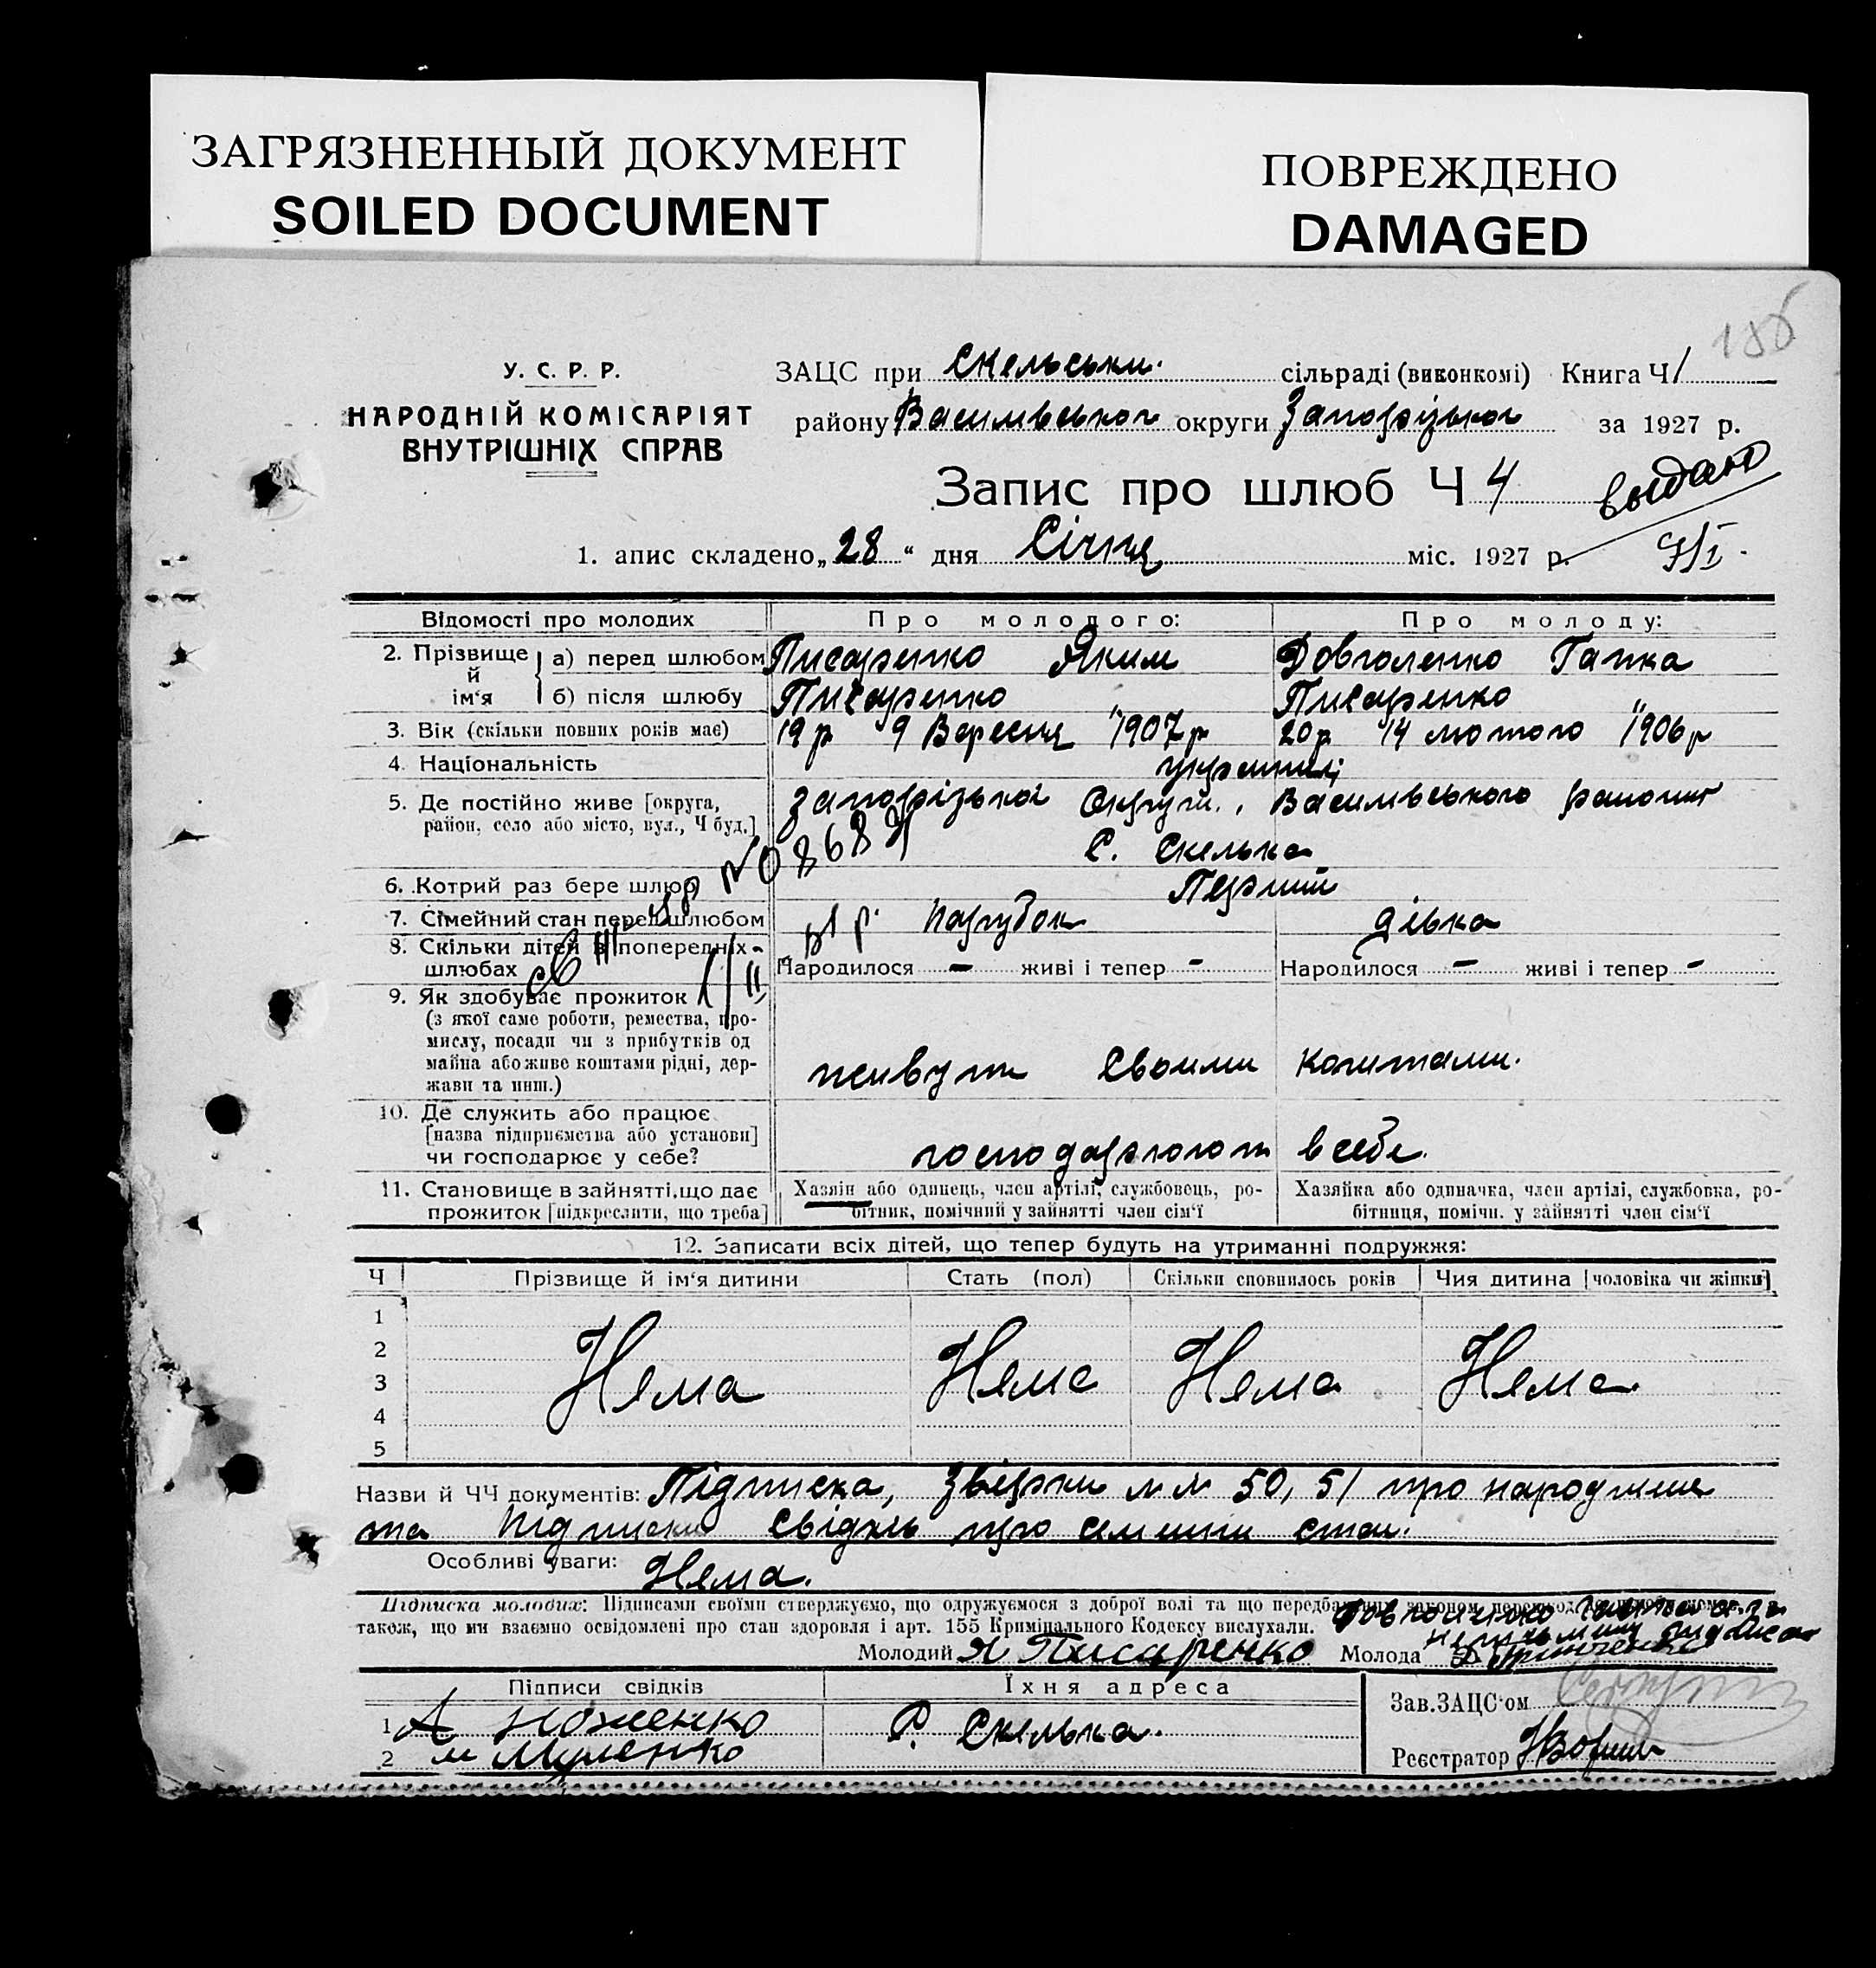 ЗАГРЯЗНЕННЫЙ ДОКУМЕНТ
SOILED DOCUMENT
ПОВРЕЖДЕНО
DAMAGED
У. С. Р. Р.
НАРОДНІЙ КОМІСАРІЯТ
ВНУТРІШНІХ СПРАВ
ЗАЦС при Скельськи. сільраді (виконкомі) Книга Ч 1
району Василівської округи Запорізької за 1927 р.
Запис про шлюб Ч 4
выдано
1. апис складено „28“ дня Січня міс. 1927 р.
Відомості про молодих Про молодого: Про молоду:
2. Прізвище й ім'я а) перед шлюбом Писаренко Яким Довголенко Гапка
б) після шлюбу Писаренко Писаренко
3. Вік (скільки повних років має) 19 р 9 Вересня 1907 р 20 р 14 лютого 1906 р
4. Національність українці
5. Де постійно живе [округа, Запорізької Округи., Василівського району
район, село або місто, вул., Ч буд.]
С. Скелька
6. Котрий раз бере шлюб Перший
7. Сімейний стан перед шлюбом парубок дівка
8. Скільки дітей в попередніх
шлюбах Народилося - живі і тепер - Народилося - живі і тепер -
9. Як здобуває прожиток
(з якої саме роботи, ремества, про-
мислу, посади чи з прибутків од
майна або живе коштами рідні, дер- живуть своими коштами.
жави та инш.)
10. Де служить або працює
[назва підприємства або установи]
чи господарює у себе? господарюють в себе.
11. Становище в зайнятті, що дає Хазяїн або одинець, член артілі, службовець, ро- Хазяйка або одиначка, член артілі, службовка, ро-
прожиток [підкреслити, що треба] бітник, помічний у зайнятті член сім'ї бітниця, помічн. у зайнятті член сім'ї
12. Записати всіх дітей, що тепер будуть на утриманні подружжя:
Ч Прізвище й ім'я дитини Стать (пол) Скільки сповнилось років Чия дитина [чоловіка чи жінки]
1
2
3 Нема Нема Нема Нема
4
5
Назви й ЧЧ документів: Підписка, Звірки 50, 51 про народження
та Підписки свідків про семейни стан.
Особливі уваги: Нема.
Підписка молодих: Підписами своїми стверджуємо, що одружуємося з доброї волі та що передбачених законом перешкод
також, що ми взаємно освідомлені про стан здоровля і арт. 155 Кримінального Кодексу вислухали.
Молодий Я Писаренко Молода
Підписи свідків Їхня адреса Зав. ЗАЦС'ом
1 А Ноженко С. Скелька.
2 Реєстратор